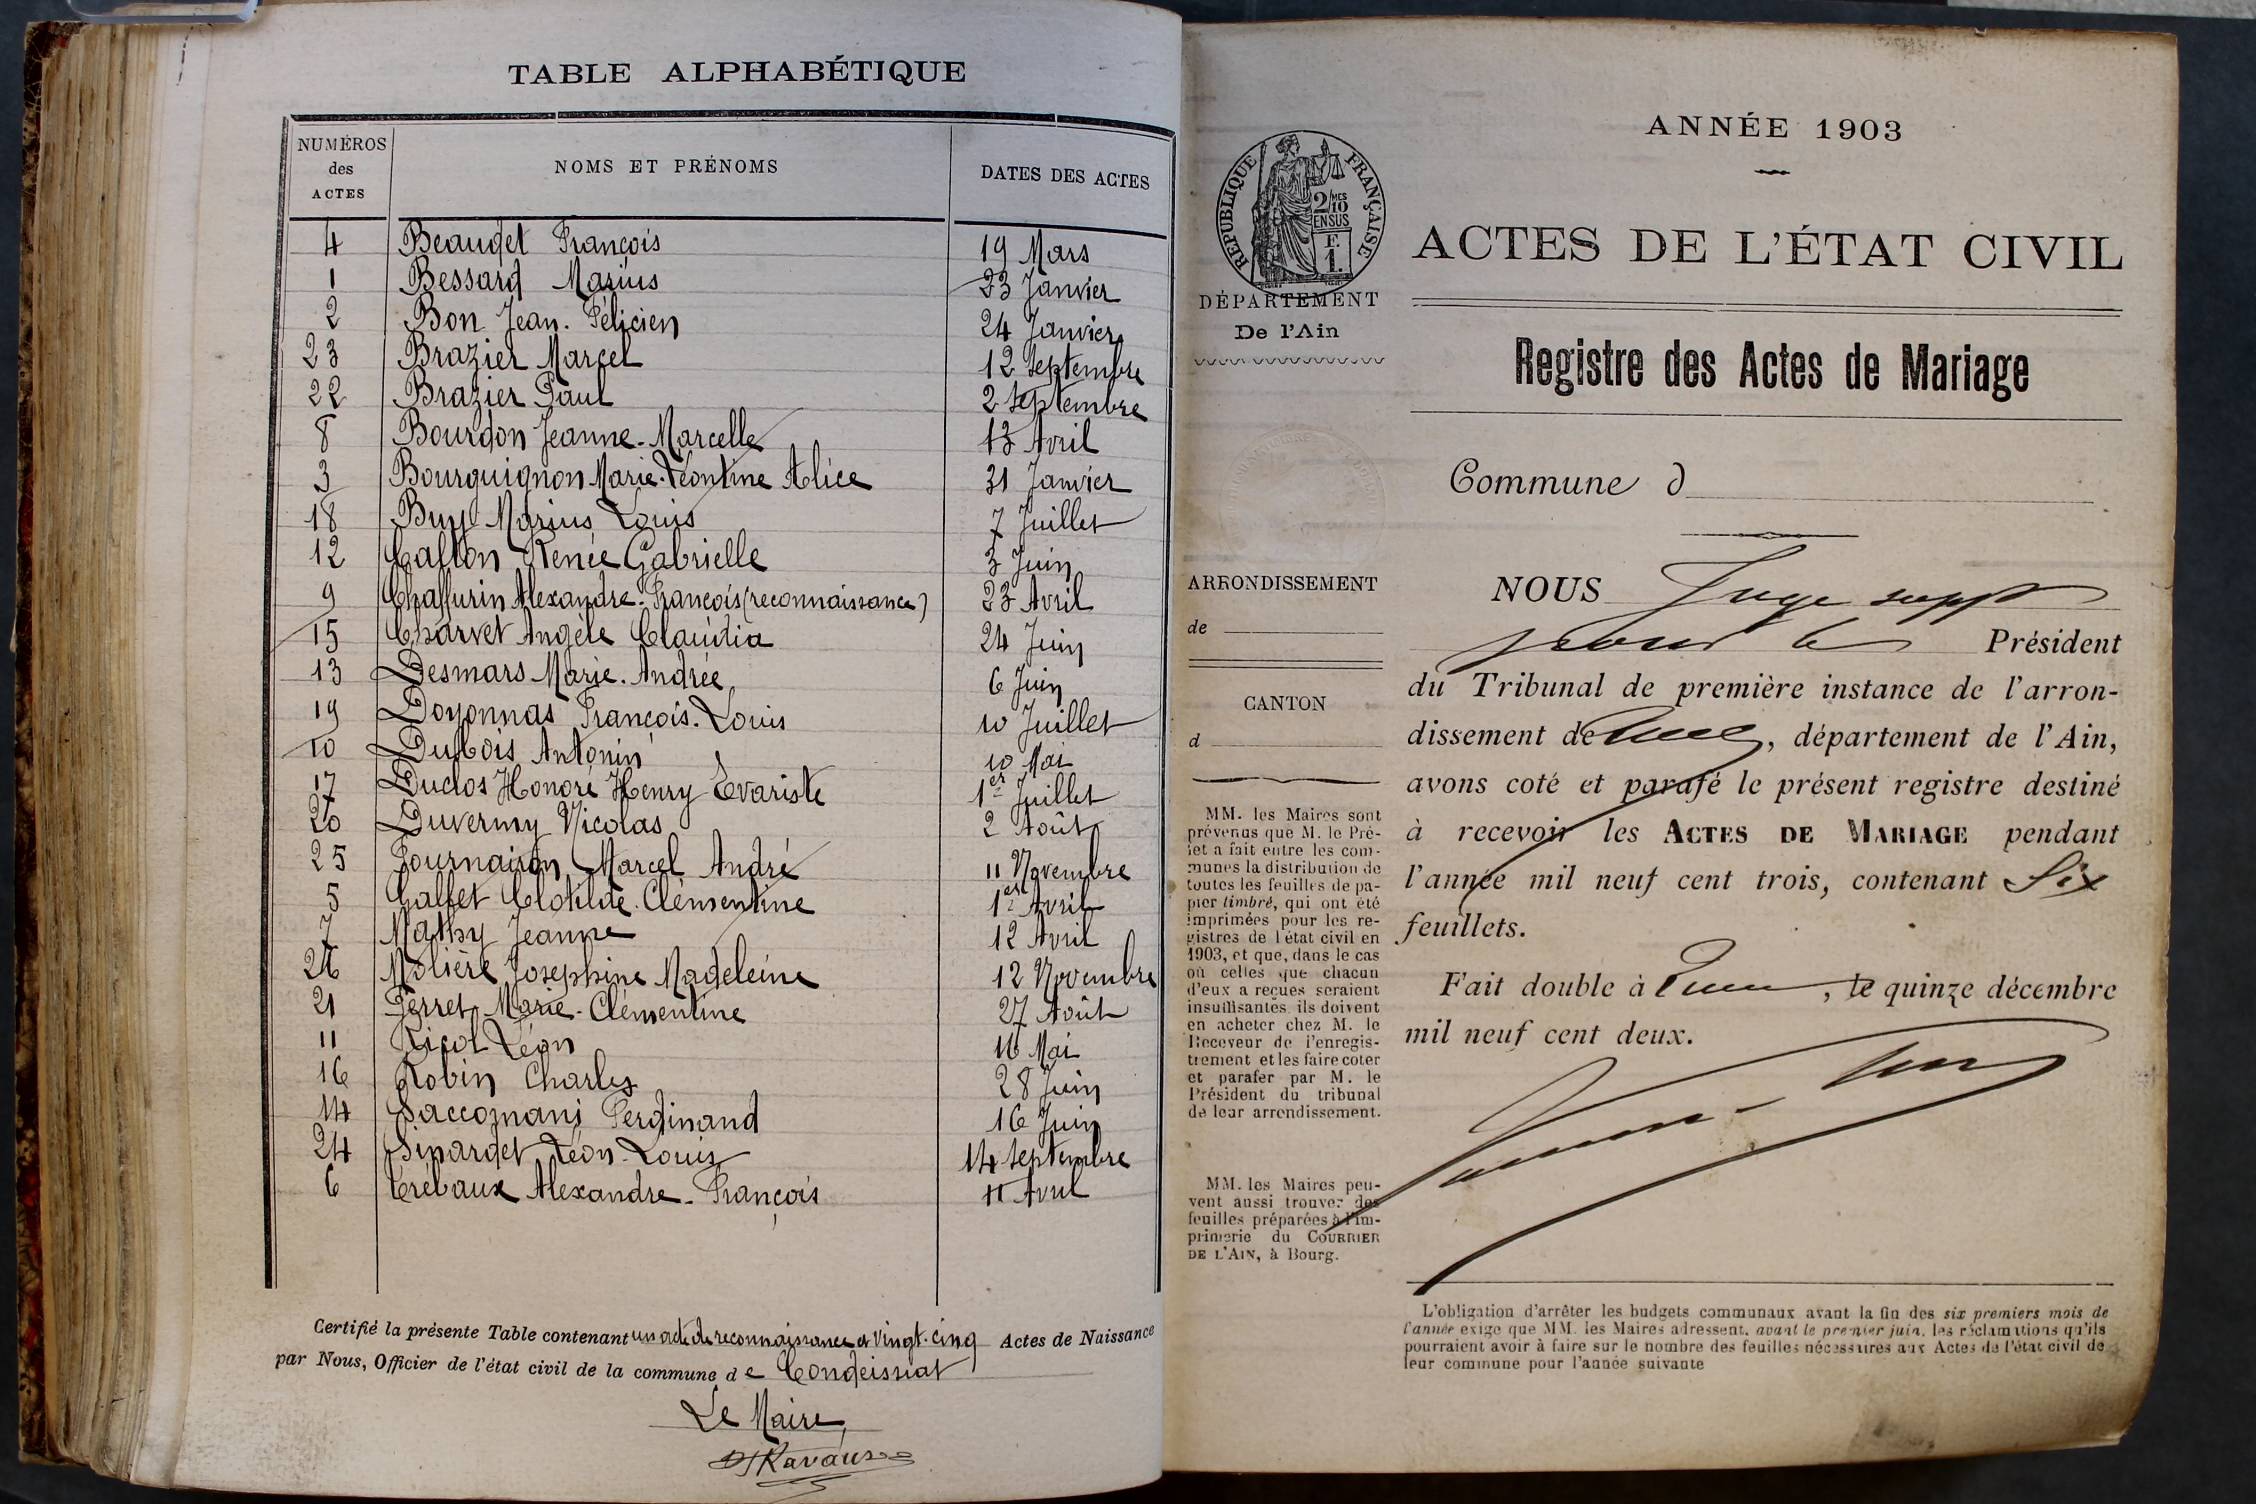 TABLE ALPHABÉTIQUE
NUMÉROS des ACTES NOMS ET PRÉNOMS DATES DES ACTES
4 Beaudet François 19 Mars
1 Bessard Marius 23 Janvier
2 Bon Jean-Félicien 24 Janvier
23 Brazier Marcel 12 Septembre
22 Brazier Paul 2 Septembre
8 Bourdon Jeanne-Marcelle 13 Avril
3 Bourguignon Marie-Léontine Alice 31 Janvier
18 Buy Marius Louis 7 Juillet
12 Callon Renée Gabrielle 3 Juin
9 Chaffurin Alexandre-François (reconnaissance) 23 Avril
15 Charvet Angèle Claudia 24 Juin
13 Desmars Marie-Andrée 6 Juin
19 Doyonnas François-Louis 10 Juillet
10 Dubois Antonin 10 Mai
17 Duclos Honoré Henry Evariste 1er Juillet
20 Duvernay Nicolas 2 Août
25 Fournairon Marcel André 11 Novembre
5 Gallet Clotilde-Clémentine 1er Avril
7 Mathy Jeanne 12 Avril
26 Molière Joséphine Madeleine 12 Novembre
21 Perret Marie-Clémentine 27 Août
11 Ricol Léon 16 Mai
16 Robin Charles 28 Juin
14 Saccomani Ferdinand 16 Juin
24 Sinardet Léon-Louis 14 Septembre
6 Alexandre-François 11 Avril
Certifié la présente Table contenant un acte de reconnaissance et vingt-cinq Actes de Naissance
par Nous, Officier de l'état civil de la commune de Condeissiat
Le Maire,
Ravaux
ANNÉE 1903
RÉPUBLIQUE FRANÇAISE
2/10 MES
EN SUS
F.
1.
ACTES DE L'ÉTAT CIVIL
DÉPARTEMENT
De l'Ain
Registre des Actes de Mariage
Commune d
ARRONDISSEMENT
de
CANTON
d
MM. les Maires sont
prévenus que M. le Pré-
fet a fait entre les com-
munes la distribution de
toutes les feuilles de pa-
pier timbré, qui ont été
imprimées pour les re-
gistres de l'état civil en
1903, et que, dans le cas
où celles que chacun
d'eux a reçues seraient
insuffisantes, ils doivent
en acheter chez M. le
Receveur de l'enregis-
trement et les faire coter
et parafer par M. le
Président du tribunal
de leur arrondissement.
MM. les Maires peu-
vent aussi trouver des
feuilles préparées à l'im-
primerie du COURRIER
DE L'AIN, à Bourg.
NOUS Juge suppt
pour le Président
du Tribunal de première instance de l'arron-
dissement de , département de l'Ain,
avons coté et parafé le présent registre destiné
à recevoir les ACTES DE MARIAGE pendant
l'année mil neuf cent trois, contenant Six
feuillets.
Fait double à , le quinze décembre
mil neuf cent deux.
L'obligation d'arrêter les budgets communaux avant la fin des six premiers mois de
l'année exige que MM. les Maires adressent, avant le premier juin, les réclamations qu'ils
pourraient avoir à faire sur le nombre des feuilles nécessaires aux Actes de l'état civil de
leur commune pour l'année suivante